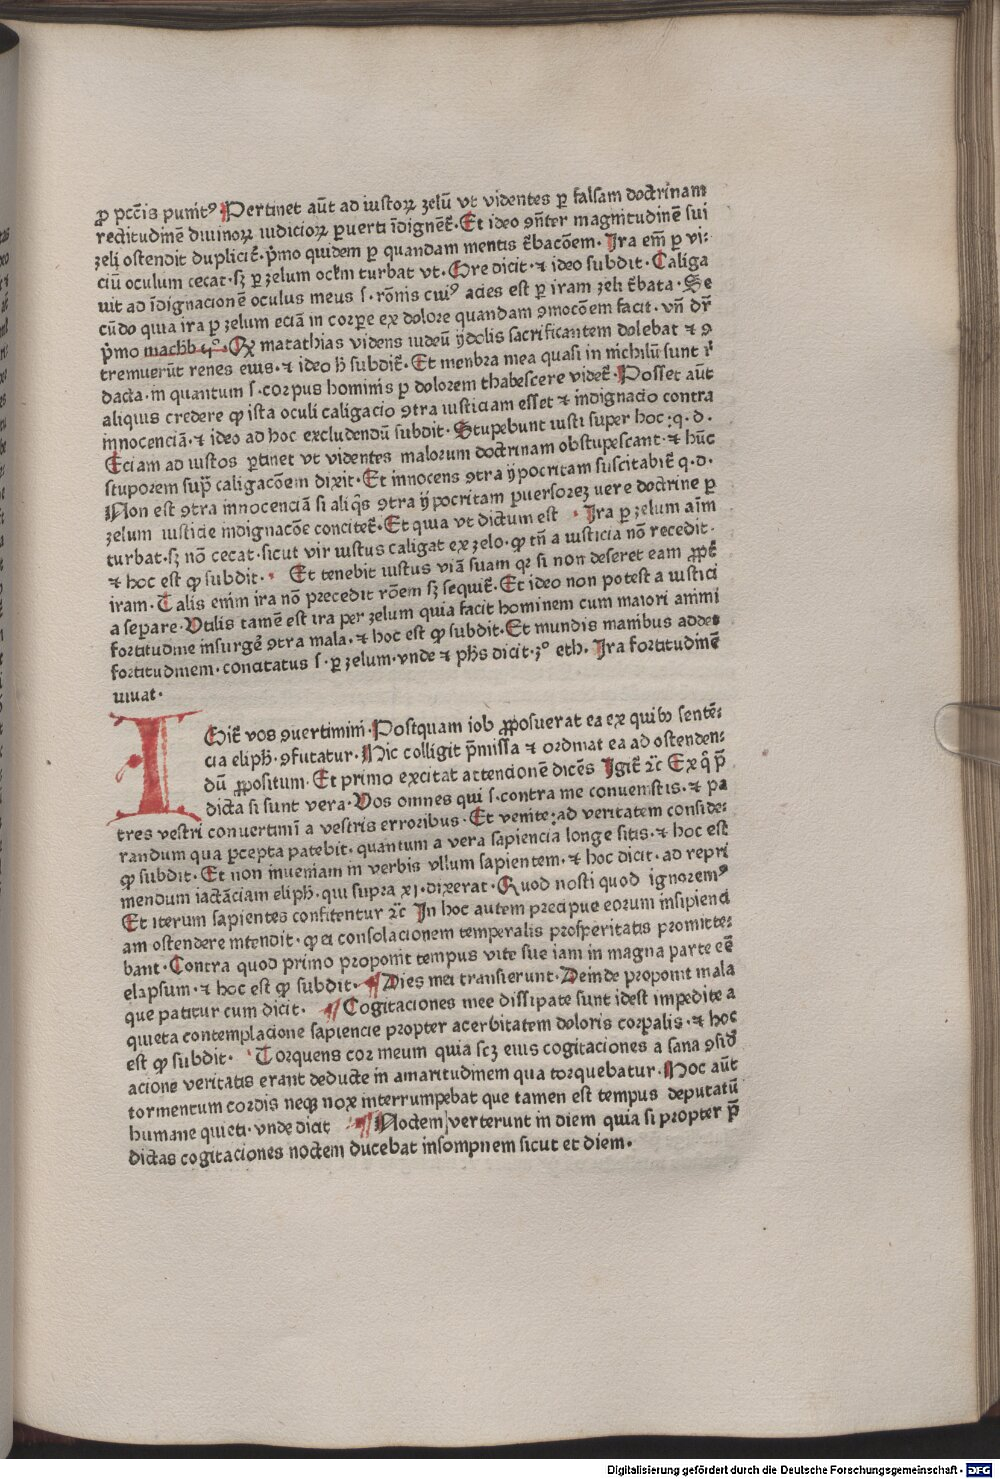 ꝓ pctīs punit᷒ Pertinet aūt ad iustoꝝ zelū vt videntes ꝑ falsam doctrinam
rectitudinē diuinoꝝ iudicioꝝ ꝑuerti īdignēt᷑. Et ideo ꝯn̄ter magnitudinē sui
zelꝫ ostendit duplicit᷑. p̄mo quidem ꝑ quandam mentis t᷑bacōem. Ira em̄ ꝑ vi:
ciū oculum cecat. sꝫ ꝑ zelum ocl̄m turbat vt. Gre dicit. ⁊ ideo subdit. Caliga
uit ad īdignacionē oculus meus s. rōnis cui᷒ acies est ꝑ iram zeli t᷑bata. Se
cūdo quia ira ꝑ zelum eciā in corꝑe ex dolore quandam ꝯmocōem facit. vn̄ dr̄
p̄mo machb ijº. Qꝫ matathias videns iudeū ÿdolis sacrificantem dolebat ⁊ ꝯ
tremuerūt renes eius. ⁊ ideo h̄ subdit᷑. Et menbra mea quasi in nichilū sunt r᷑
dacta. in quantum s. corpus hominis ꝑ dolorem thabescere videt᷑. Posset aūt
aliquis credere ꝙ ista oculi caligacio ꝯtra iusticiam esset ⁊ indignacio contra
innocenciā. ⁊ ideo ad hoc excludendū subdit. Stupebunt iusti super hoc: q. d.
Eciam ad iustos ꝑtinet vt videntes malorum doctrinam obstupescant. ⁊ hūc
stuporem sup̄ caligacōem dixit. Et innocens ꝯtra ÿpocritam suscitabit᷑ q. d.
Non est ꝯtra innocenciā si aliq̄s ꝯtra ÿpocritam ꝑuersorez vere doctrine ꝑ
zelum iusticie indignacōe concitet᷑. Et quia vt dictum est Ira ꝑ zelum aīm
turbat. sꝫ nō cecat. sicut vir iustus caligat ex zelo. ꝙ tn̄ a iusticia nō recedit.
⁊ hoc est ꝙ subdit. Et tenebit iustus viā suam qꝛ si non deseret eam ꝓpt᷑
iram. Talis enim ira nō precedit rōem sꝫ sequit᷑. Et ideo non potest a iustici
a separe. Vtilis tamē est ira per zelum quia facit hominem cum maiori animi
fortitudine insurge᷑ ꝯtra mala. ⁊ hoc est ꝙ subdit. Et mundis manibus addet
fortitudinem. concitatus s. ꝑ zelum. vnde ⁊ phs dicit. 3º eth. Ira fortitudinē
iuuat.
IGit᷑ vos ꝯuertimini. Postquam iob ꝓposuerat ea ex quibꝫ sentē:
cia eliph̄. ꝯfutatur. Hic colligit p̄missa ⁊ ordinat ea ad ostenden:
dū ꝓpositum. Et primo excitat attencionē dicēs Igit᷑ ⁊c̄ Ex q̄ p̄
dicta si sunt vera. Vos omnes qui s. contra me conuenistis. ⁊ pa
tres vestri conuertimī a vestris erroribus. Et venite: ad veritatem conside:
randum qua ꝑcepta patebit. quantum a vera sapiencia longe sitis. ⁊ hoc est
ꝙ subdit. Et non inueniam in verbis vllum sapientem. ⁊ hoc dicit. ad repri
mendum iactāciam eliph̄. qui supra xj. dixerat. Quod nosti quod ignorem᷒
Et iterum sapientes confitentur ⁊c̄ In hoc autem precipue eorum insipienci
am ostendere intendit. ꝙ ei consolacionem temperalis prosperitatis promitte:
bant. Contra quod primo proponit tempus vite sue iam in magna parte eē
elapsum. ⁊ hoc est ꝙ subdit. Dies mei transierunt. Deinde proponit mala
que patitur cum dicit. Cogitaciones mee dissipate sunt idest impedite a
quieta contemplacione sapiencie propter acerbitatem doloris corꝑalis. ⁊ hoc
est ꝙ subdit. Torquens cor meum quia scꝫ eius cogitaciones a sana ꝯsid᷑
acione veritatis erant deducte in amaritudinem qua torquebatur. Hoc aūt
tormentum cordis neqꝫ nox interrumpebat que tamen est tempus deputatū
humane quieti. vnde dicit Noctem verterunt in diem quia si propter p̄
dictas cogitaciones noctem ducebat insompnem sicut et diem.
Digitalisierung gefördert durch die Deutsche Forschungsgemeinschaft - DFG